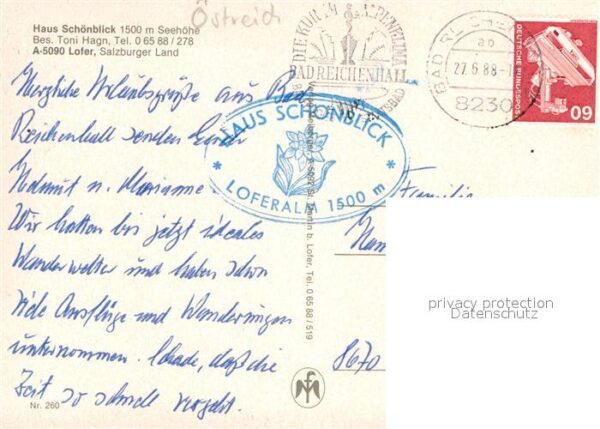 Östreich
Haus Schönblick 1500 m Seehöhe
Bes. Toni Hagn, Tel. 0 65 88 / 278
A-5090 Lofer, Salzburger Land
DIE KUR IM ALPENKLIMA
BAD REICHENHALL
BAD REICHENHALL
27.6.88
8230
DEUTSCHE BUNDESPOST
60
Herzliche Urlaubsgrüße aus Bad
Reichenhall senden Euch
Helmut u. Marianne
Wir hatten bis jetzt ideales
Wanderwetter und haben schon
viele Ausflüge und Wanderungen
unternommen. Schade, daß die
Zeit so schnell vergeht.
HAUS SCHÖNBLICK
* *
LOFERALM 1500 m
Familie
8670
St. Martin b. Lofer, Tel. 0 65 88 / 519
privacy protection
Datenschutz
Nr. 260